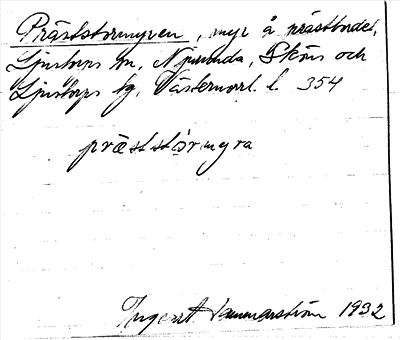 Prästtormyren, myr å prästbordet,
Ljustorps sn, Njurunda, Sköns och
Ljustorps tg, Västernorrl. l. 354
präststo̱rmyra
Ingegerd Hammarström 1932